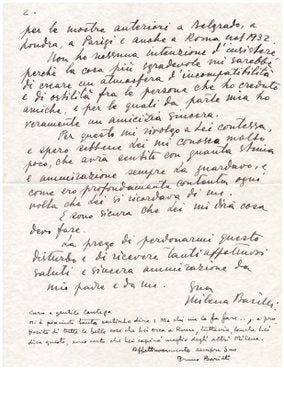 2.
per le mostre anteriori a Belgrado, a
Londra, a Parigi e anche a Roma nel 1932.
Non ho nessuna intenzione d'insistere
perchè la cosa più sgradevole mi sarebbe
di creare un atmosfera d'incompatibilità
e di ostilità fra le persone che ho creduto
amiche, e per le quali da parte mia ho
veramente un amicizia sincera.
Per questo mi rivolgo a Lei contessa,
e spero sebbene Lei mi conosca molto
poco, che avrà sentito con quanta stima
e ammirazione sempre La guardavo, e
come ero profondamente contenta ogni
volta che Lei si ricordava di me.
E sono sicura che Lei mi dirà cosa
devo fare.
La prego di perdonarmi questo
disturbo e di ricevere tanti affettuosi
saluti e sincera ammirazione da
mio padre e da me. Sua
Milena Barilli
Cara e gentile Contessa
Mi è piaciuto tanto sentirla dire: Ma chi me lo fa fare..., a pro-
posito di tutte le belle cose che Lei crea a Roma, tuttavia, benchè Lei
dica questo, sono certo che Lei capirà meglio degli altri Milena.
Affettuosamente sempre Suo
Bruno Barilli